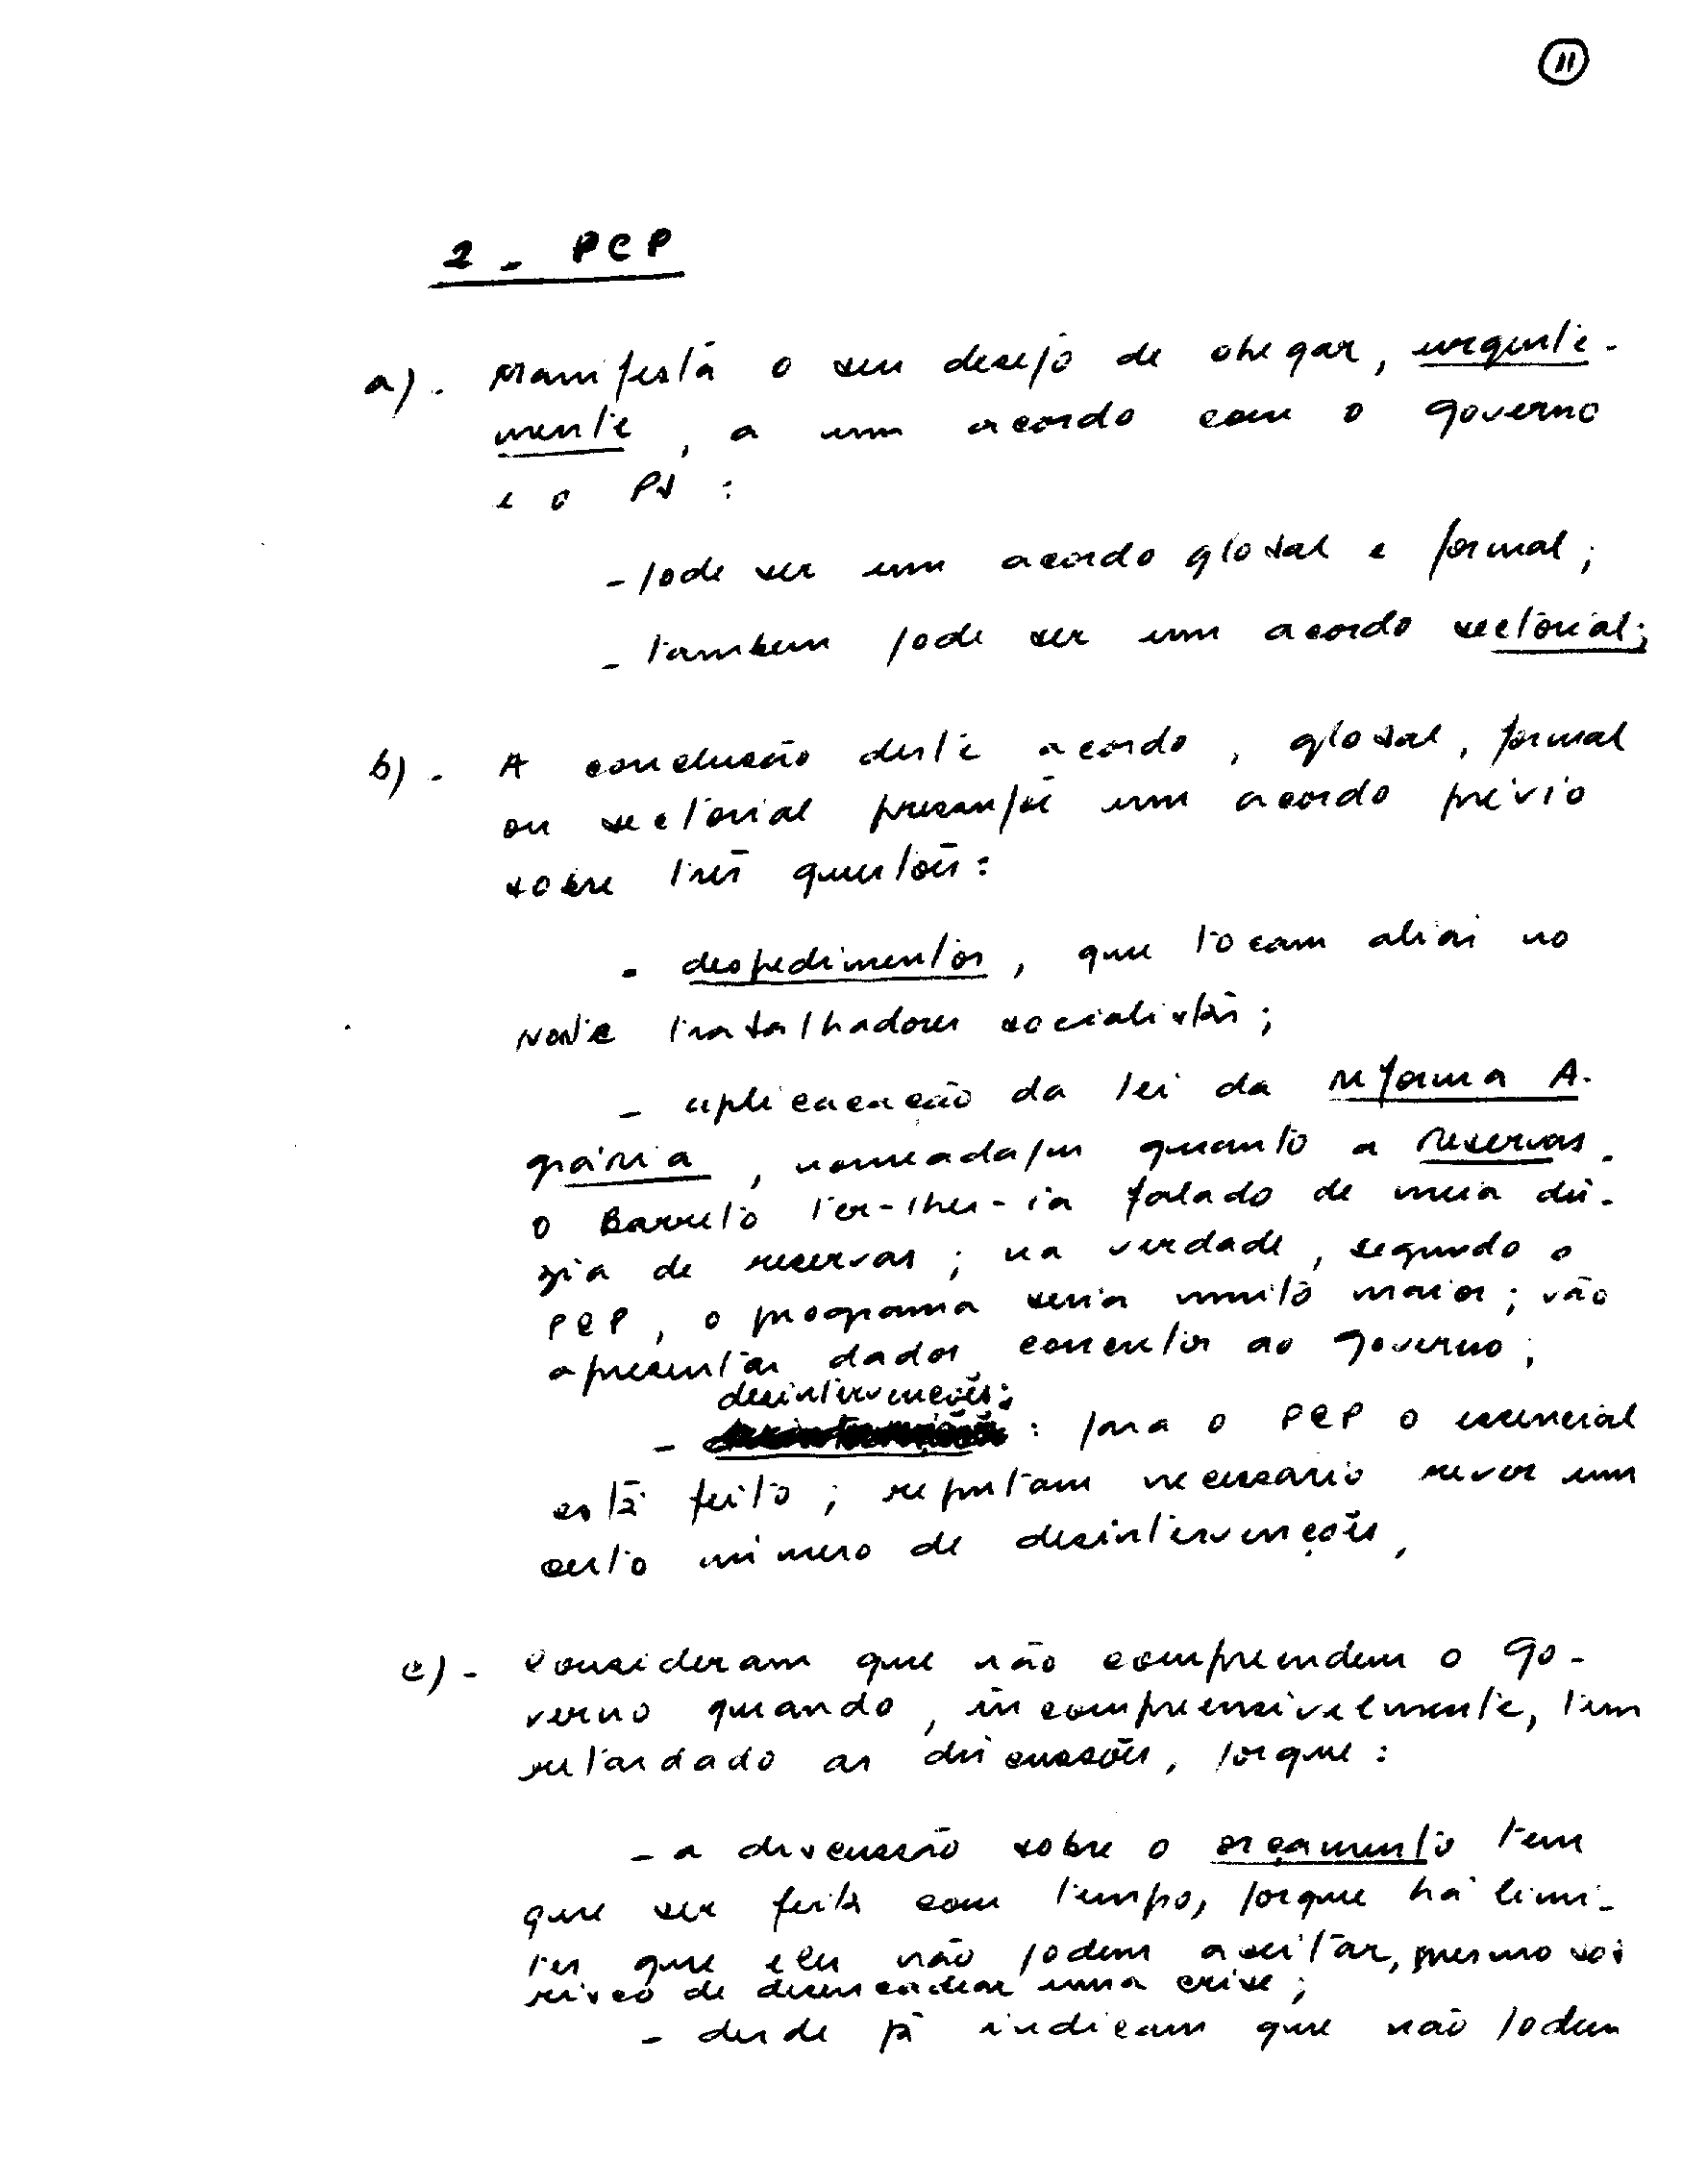 11
2 - PCP
a) - Manifesta o seu desejo de chegar, urgente-
mente, a um acordo com o governo
e o PS :
- pode ser um acordo global e formal;
- tambem pode ser um acordo sectorial;
b) - A conclusão deste acordo, global, formal
ou sectorial presupõe um acordo prévio
sobre três questões:
- despedimentos, que tocam aliás no
Norte trabalhadores socialistas;
- aplicacação da lei da reforma A-
grária, nomeada/m quanto a reservas.
O Barreto ter-lhes-ia falado de meia dú-
zia de reservas; na verdade, segundo o
PCP, o programa seria muito maior; vão
apresentar dados concretos ao governo;
desintervenções:
- : para o PCP o essencial
está feito; reputam necessário rever um
certo número de desintervenções,
c) - Consideram que não compreendem o go-
verno quando, incompreensivelmente, tem
retardado as discussões, porque:
- a discussão sobre o orçamento tem
que ser feita com tempo, porque há limi-
tes que eles não podem aceitar, mesmo sob
risco de desencadear uma crise;
- desde já indicam que não podem